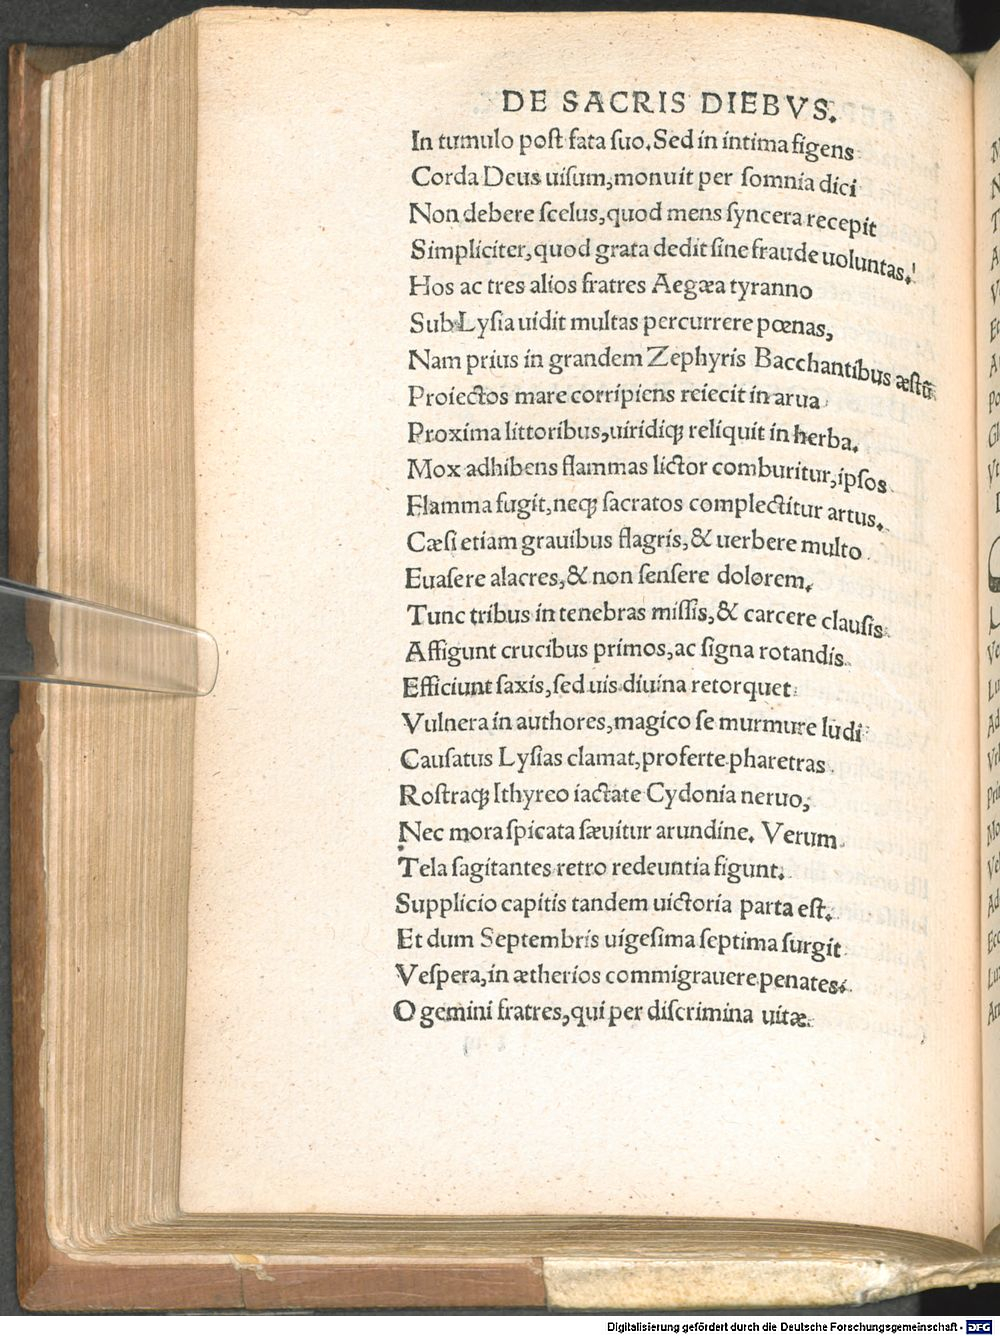 DE SACRIS DIEBVS.
In tumulo post fata suo. Sed in intima figens
Corda Deus uisum, monuit per somnia dici
Non debere scelus, quod mens syncera recepit
Simpliciter, quod grata dedit sine fraude uoluntas.
Hos ac tres alios fratres Aegæa tyranno
Sub Lysia uidit multas percurrere pœnas,
Nam prius in grandem Zephyris Bacchantibus æstũ
Proiectos mare corripiens reiecit in arua
Proxima littoribus, uiridiq; reliquit in herba.
Mox adhibens flammas lictor comburitur, ipsos
Flamma fugit, neq; sacratos complectitur artus.
Cæsi etiam grauibus flagris, & uerbere multo
Euasere alacres, & non sensere dolorem.
Tunc tribus in tenebras missis, & carcere clausis
Affigunt crucibus primos, ac signa rotandis
Efficiunt saxis, sed uis diuina retorquet
Vulnera in authores, magico se murmure ludi
Causatus Lysias clamat, proferte pharetras
Rostraq; Ithyreo iactate Cydonia neruo,
Nec mora spicata sæuitur arundine. Verum
Tela sagitantes retro redeuntia figunt.
Supplicio capitis tandem uictoria parta est.
Et dum Septembris uigesima septima surgit
Vespera, in ætherios commigrauere penates.
O gemini fratres, qui per discrimina uitæ
Digitalisierung gefördert durch die Deutsche Forschungsgemeinschaft - DFG